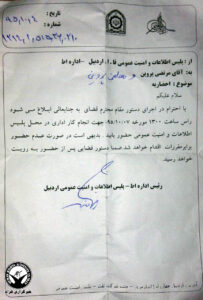 تاریخ : ۹۵,۱۰,۴
شماره : ۱۲۱۹,۱,۵۱۵,۳۷,۲۱۰
از : پلیس اطلاعات و امنیت عمومی فا.ا.اردبیل - اداره اط
به : آقای مرتضی پروین
موضوع : احضاریه
سلام علیکم
با احترام در اجرای دستور مقام محترم قضای به جنابعالی ابلاغ می شود
راس ساعت ۱۳۰۰ مورخه ۹۵/۱۰/۰۷ جهت انجام کار اداری در محل پلیس
اطلاعات و امنیت عمومی حضور یابد. بدیهی است در صورت عدم حضور
برابرمقررات اقدام خواهد شد.ضمنا دستور قضایی پس از حضور به رویت
خواهد رسید.
رئیس اداره اط - پلیس اطلاعات و امنیت عمومی اردبیل